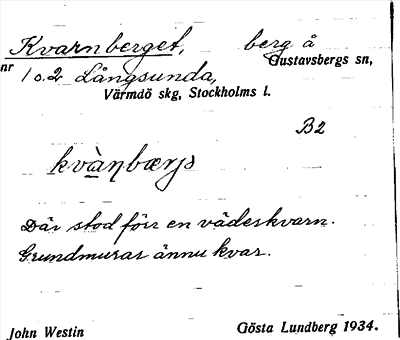 Kvarnberget, berg å
Gustavsbergs sn,
nr 1 o. 2 Långsunda,
Värmdö skg, Stockholms l.
B2
kvàṇbærjs
Där stod förr en väderskvarn.
Grundmuras ännu kvar.
John Westin Gösta Lundberg 1934.